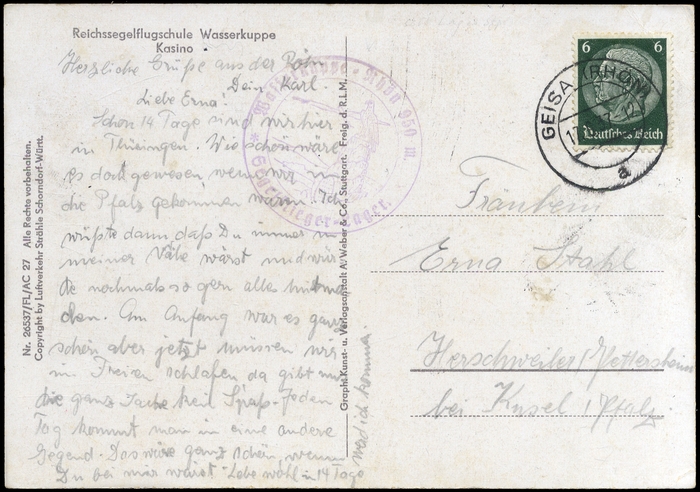 Reichssegelflugschule Wasserkuppe
Kasino
Herzliche Grüße aus der Röhn
Dein Karl.
Liebe Erna!
Schon 14 Tage sind wir hier
in Thüringen. Wie schön wäre
es doch gewesen wenn wir in
die Pfalz gekommen wären. Ich
wüßte dann daß Du immer in
meiner Nähe wärst und würde
nochmals so gern alles mitma
chen. Am Anfang war es ganz
schön aber jetzt müssen wir
in Freien schlafen da gibt uns
die ganz Sache kein Spaß. Jeden
Tag kommt man in eine andere
Gegend. Das wäre ganz schön, wenn
Du bei mir wärst. Lebe wohl in 14 Tage
werd ich kommen.
Nr. 26537/FL/AC 27 Alle Rechte vorbehalten.
Copyright by Luftverkehr Strähle Schorndorf-Württ.
Graph. Kunst- u. Verlagsanstalt A. Weber & Co., Stuttgart. Freig. d. R.L.M.
Wasserkuppe · Rhön 950 m.
Segelflieger-Lager.
6 6
Deutsches Reich
GEISA (RHÖN)
a
Fräulein
Erna Stahl
Herschweiler/Pettersheim
bei Kusel /Pfalz